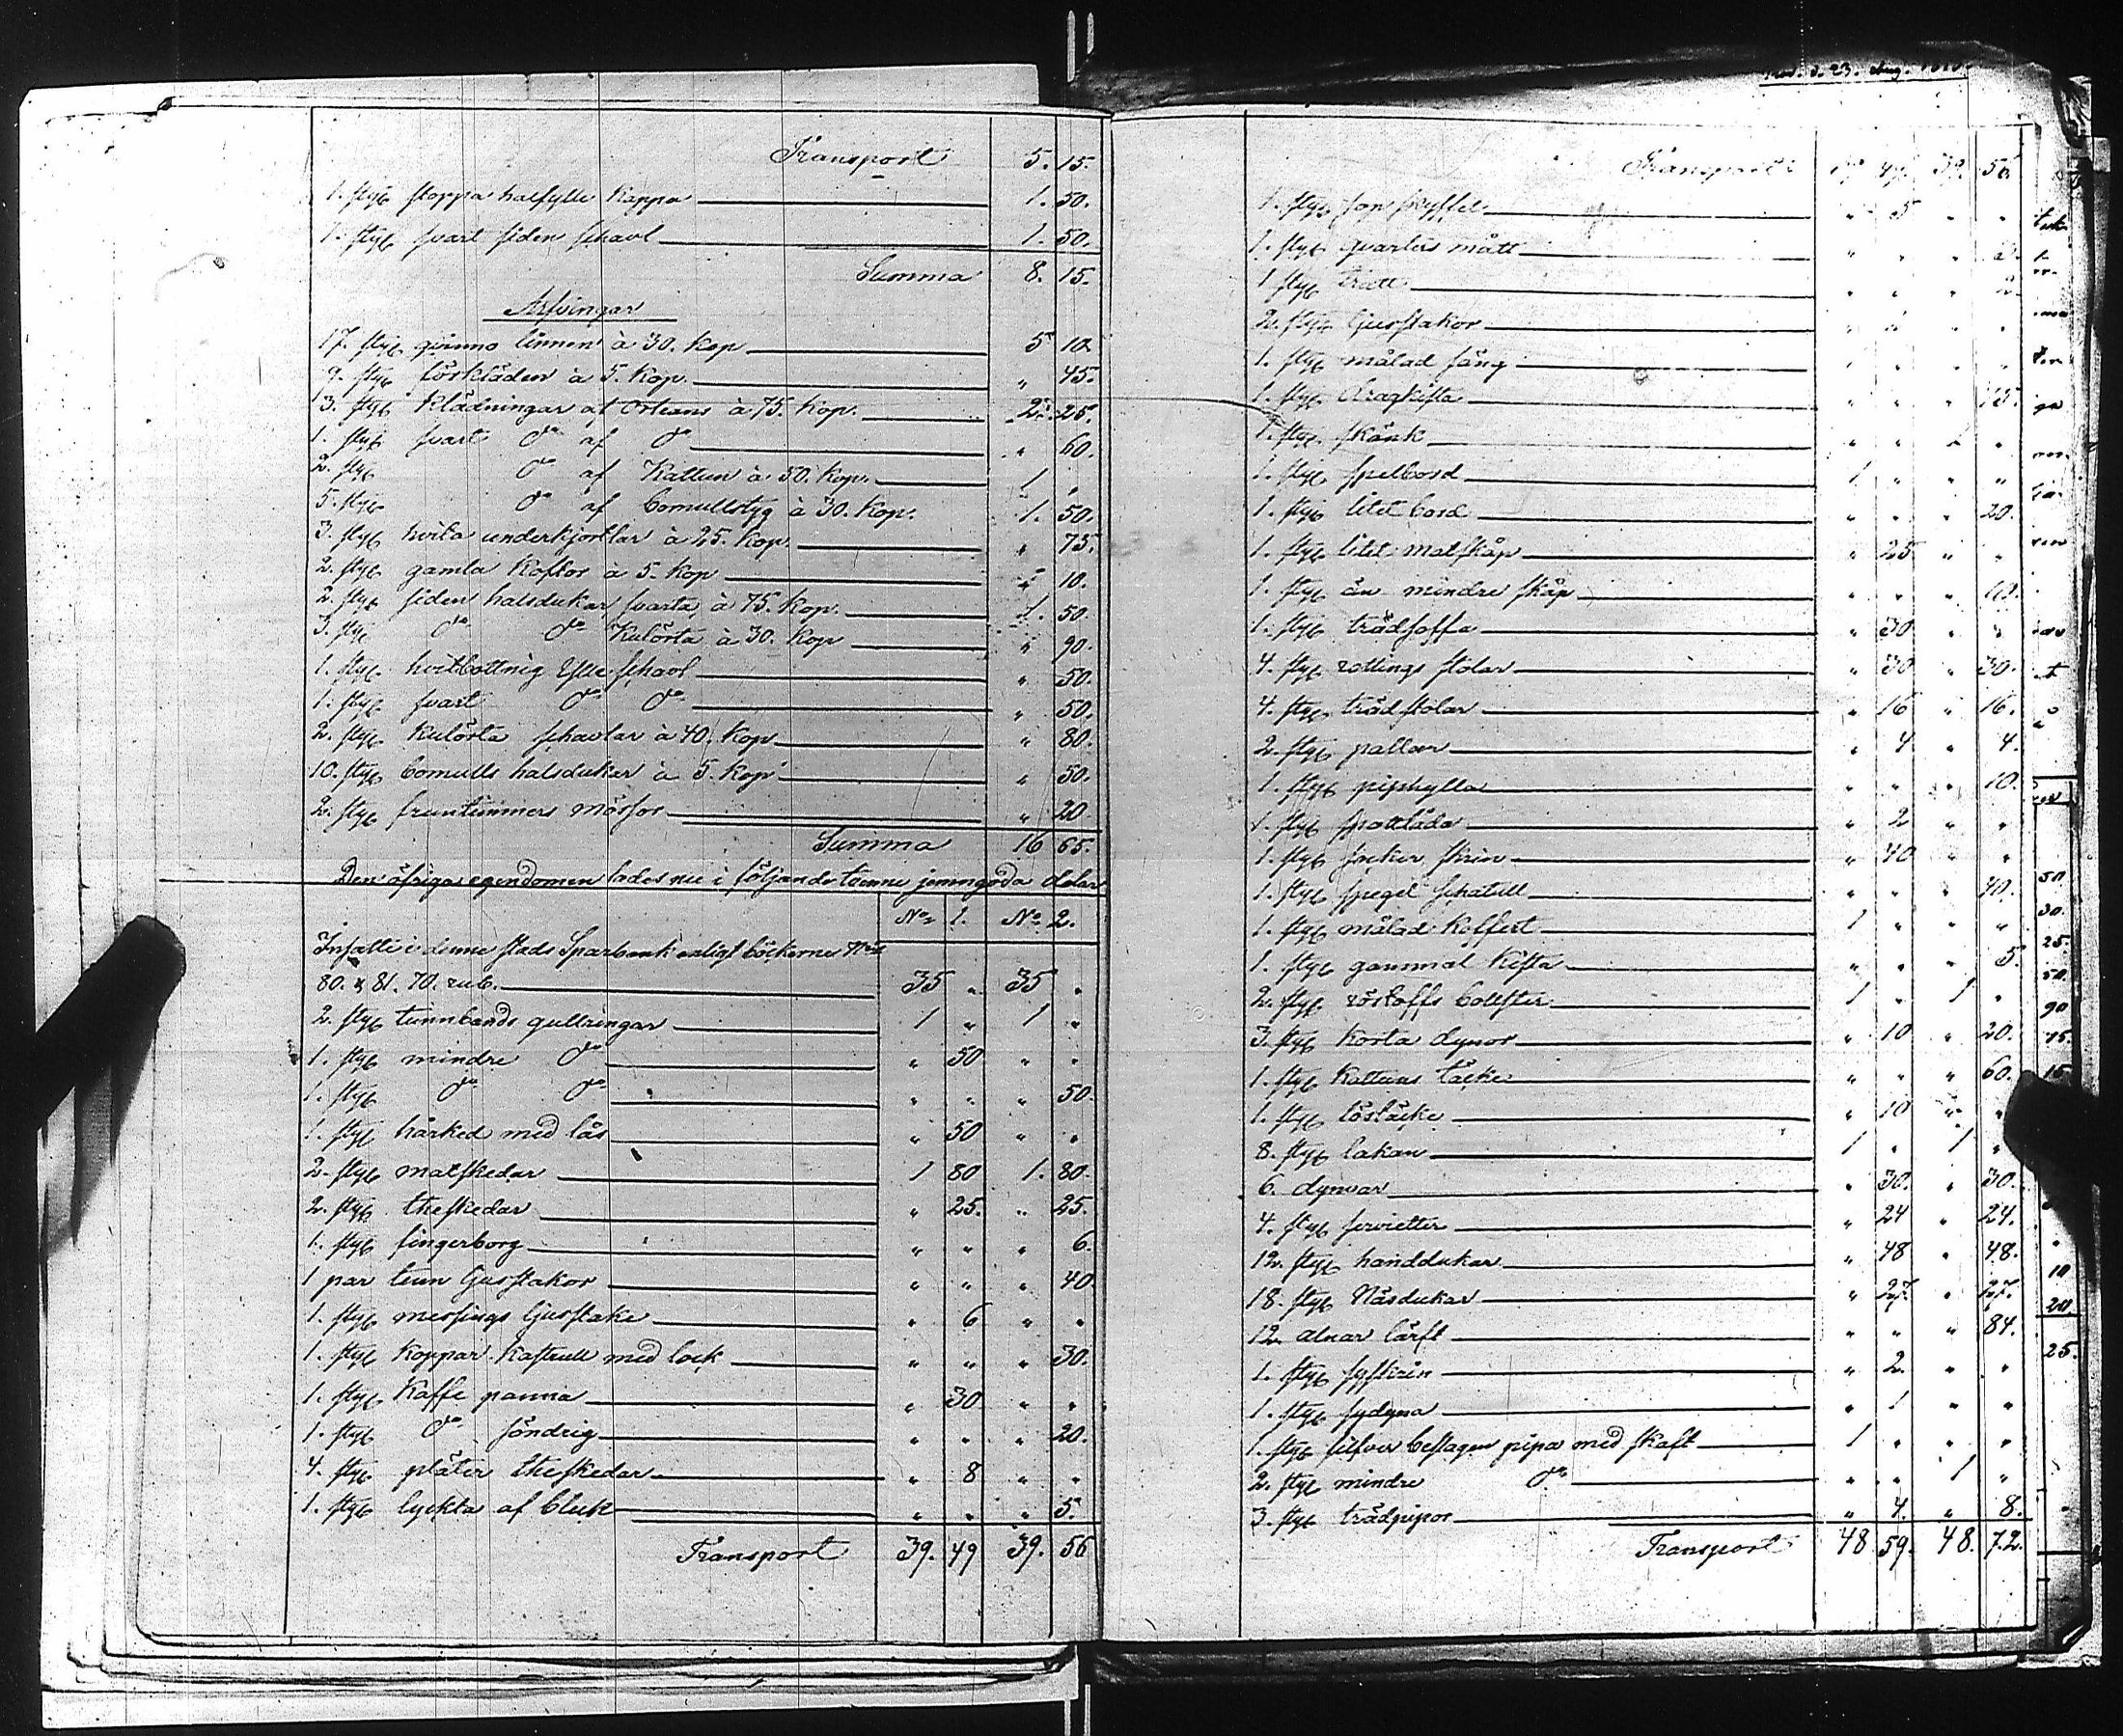 Transport 5. 15.
1. styk stoppa halfylle Kappa 1. 50.
1. styk svart siden schavl 1. 50.
Summa 8. 15.
Arfvingar
17. styk qvinno linnen à 30. Kop 5 10
9. styk förkläden à 5. Kop. " 45.
3. styk Klädningar af Orleans à 75. Kop. 2. 25.
1. styk svart do af do " 60.
2. styk do af Kattun à 50. Kop. 1 "
5. styk do af bomullstyg à 30. Kop. 1. 50.
3. styk hvita underkjortlar à 25. Kop. " 75.
2. styk gamla Koftor à 5. Kop " 10.
2. styk siden halsdukar svarta à 75. Kop. 1. 50.
3. styk do do Kulörta à 30. Kop " 90.
1. styk hvitbottnig Ylle schavl " 50.
1. styk svart do do " 50.
2. styk Kulörta schavlar à 40. Kop " 80.
10. styk bomulls halsdukar à 5. Kop " 50.
2. styk fruntimmers mössor " 20
Summa 16 65.
Den öfriga egendomen lades nu i följande tvenne jemngoda delar
No 1. No 2.
Insatte i denne stads Sparbank enligt böckerne Nris
80. & 81. 70. rub. 35 " 35 "
2. styk tunnbands gullringar 1 " 1 "
1. styk mindre do " 50 " "
1. styk do do " " " 50.
1. styk hårked med lås " 50 " "
2. styk matskedar 1 80 1. 80.
2. styk theskedar " 25. " 25.
1. styk fingerborg " " " 6.
1 par tenn ljusstakor " " " 40
1. styk messings ljusstake " 6 " "
1. styk Koppar Kastrull med lock " " " 30.
1. styk Kaffe panna " 30 " "
1. styk do söndrig " " " 20.
4. styk pläter theskedar " 8 " "
1. styk lyckta af bleck " " " 5.
Transport 39. 49 39. 56
Transport 39 49. 39. 56
1. styk sop skyffel " 5 " "
1. styk qvarters mått " " " 2.
1 styk tratt " " " 2.
2. styk ljusstakor
1. styk målad säng
1. styk dragkista " " " 75.
1. styk skänk
1. styk spelbord 1 " " "
1. styk litet bord " " " 20.
1. styk litet matskåp " 25 " "
1. styk än mindre skåp " " " 10.
1. styk trädsoffa " 30 " "
4. styk rottings stolar " 30 " 30.
4. styk trädstolar " 16 " 16.
2. styk pallar " 4 " 4.
1. styk piphylla " " " 10.
1. styk spottlåda " 2 " "
1. styk socker skrin " 40 " "
1. styk spegel schatull " " " 40.
1. styk målad Koffert 1 " " "
1. styk gammal Kista " " " 5.
2. styk böllster 1 " 1 "
3. styk Korta dynor " 10 " 20.
1. styk Kattuns täcke " " " 60.
1. styk löstäcke " 10 " "
8. styk lakan 1 " 1 "
6. dynvar " 30. " 30.
4. styk servietter " 24 " 24.
12. styk handdukar " 48 " 48.
18. styk Näsdukar " 27. " 27.
12. alnar lärft " " " 84.
1. styk syskrin " 2. " "
1. styk sydyna " 1 " "
1. styk silfver beslagen pipa med skaft 1 " " "
2. styk mindre do " " 1 "
3. styk trädpipor " 4. " 8.
Transport 48 59. 48. 72.